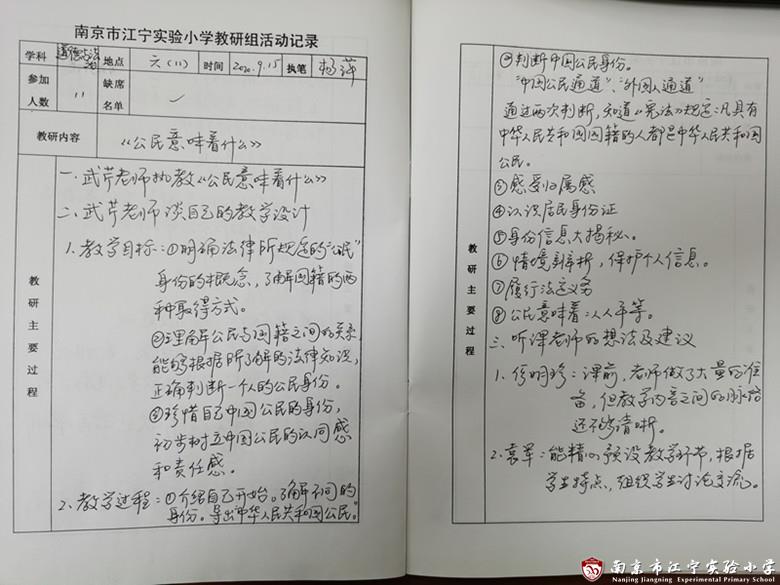 南京市江宁实验小学教研组活动记录
学科 道德与法治 地点 六(11) 时间 2020.9.15 执笔 杨萍
参加人数 11 缺席名单
教研内容 《公民意味着什么》
教研主要过程
一.武芹老师执教《公民意味着什么》
二.武芹老师谈自己的教学设计
1.教学目标:①明确法律所规定的“公民”
身份的概念,了解国籍的两
种取得方式。
②理解公民与国籍之间的关系,
能够根据所了解的法律知识,
正确判断一个人的公民身份。
③珍惜自己中国公民的身份,
初步树立中国公民的认同感
和责任感。
2.教学过程:①介绍自己开始。了解不同的
身份。导出中华人民共和国公民。
教研主要过程
②判断中国公民身份。
“中国公民通道”、“外国人通道”
通过两次判断,知道《宪法》规定:凡具有
中华人民共和国国籍的人都是中华人民共和国
公民。
③感受归属感
④认识居民身份证
⑤身份信息大揭秘。
⑥情境辨析,保护个人信息。
⑦履行法定义务
⑧公民意味着:人人平等。
三.听课老师的想法及建议
1.明珍:课前,老师做了大量的准
备,但教学内容之间的脉络
还不够清晰。
2.袁军:能精心预设教学环节,根据
学生特点,组织学生讨论交流。
南京市江宁实验小学
Nanjing Jiangning Experimental Primary School